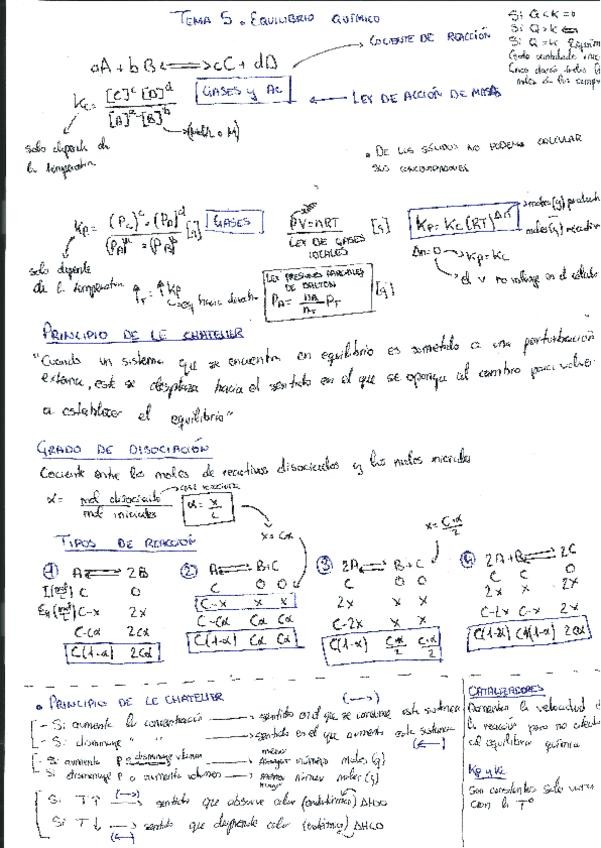 TEMA 5. EQUILIBRIO QUÍMICO
Si Q<K ⇒
Si Q>K ⇐
Si Q=K
COCIENTE DE REACCIÓN
aA + bB ⇌ cC + dD
Kc = [C]^c·[D]^d / [A]^a·[B]^b
GASES y Ac
LEY DE ACCIÓN DE MASAS
solo depende de
la temperatura
DE LOS SÓLIDOS NO PODEMOS CALCULAR
SUS CONCENTRACIONES
Kp = (Pc)^c·(PD)^d / (PA)^a·(PB)^b [g]
GASES
PV=nRT [g]
LEY DE GASES
IDEALES
Kp = Kc(RT)^Δn
Δn=0 → Kp=Kc
el V no influye en el
solo depende
de la temperatura
↑T = ↑Kp
LEY PRESIONES PARCIALES
DE DALTON
PA = nA/nT PT [g]
PRINCIPIO DE LE CHATELIER
"Cuando un sistema que se encuentra en equilibrio es sometido a una perturbación
externa, este se desplaza hacia el sentido en el que se oponga al cambio para volver
a establecer el equilibrio"
GRADO DE DISOCIACIÓN
Cociente entre los moles de reactivos disociados y los moles iniciales
α = mol disociado / mol iniciales
α = x/c
x = Cα
x = C·α/2
TIPOS DE REACCIÓN
① A ⇌ 2B
C 0
C-x 2x
C-Cα 2Cα
C(1-α) 2Cα
② A ⇌ B+C
C 0 0
C-x x x
C-Cα Cα Cα
C(1-α) Cα Cα
③ 2A ⇌ B+C
C 0 0
2x x x
C-2x x x
C(1-α) C·α/2 C·α/2
④ 2A+B ⇌ 2C
C C 0
2x x 2x
C-2x C-x 2x
C(1-α) 2Cα
• PRINCIPIO DE LE CHATELIER
- Si aumenta la concentración → sentido en el que se consume esta sustancia
- Si disminuye " " → sentido en el que aumenta esta sustancia
- Si aumenta P o disminuye volumen → menor número moles (g)
- Si disminuye P o aumenta volumen → número moles (g)
Si T↑ → sentido que absorve calor (endotérmico) ΔH>0
Si T↓ → sentido que desprende calor (exotérmico) ΔH<0
CATALIZADORES
Aumentan la velocidad de
la reacción pero no
al equilibrio químico
Kp y Kc
Son constantes solo varían
con la Tº